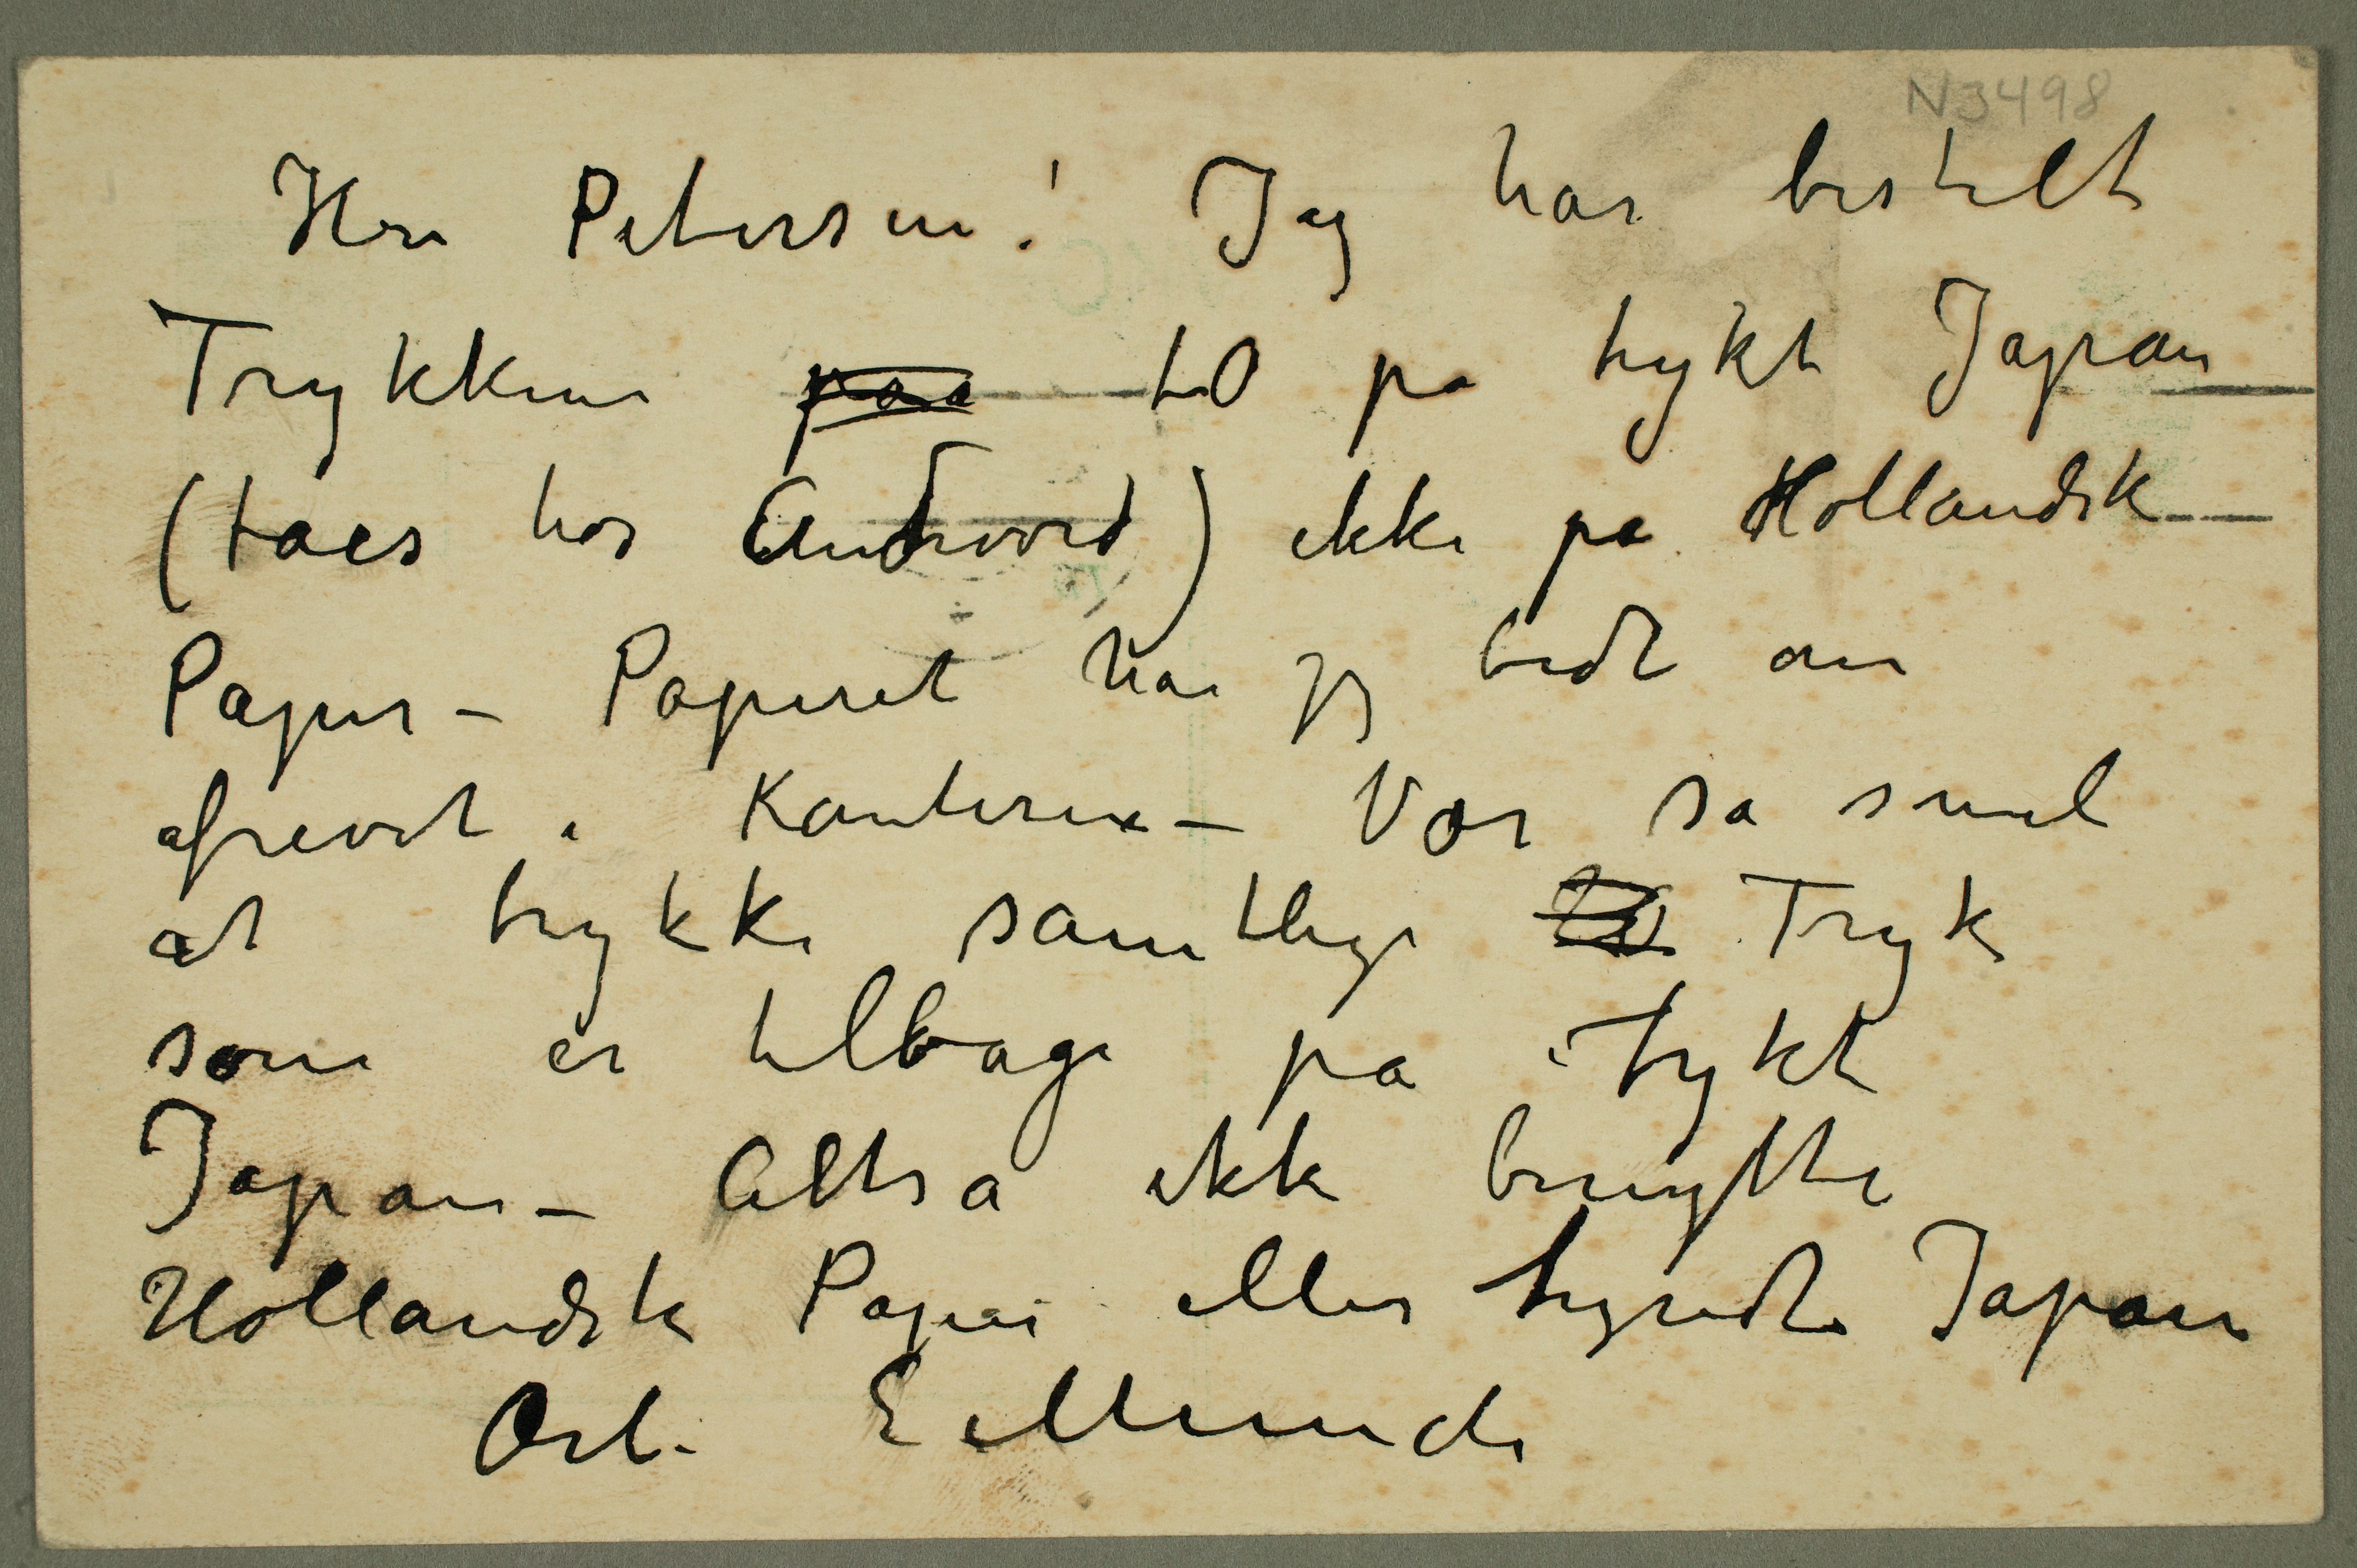 N3498
Herr Petersen! Jeg har bestelt
Trykkene paa til på tykt Japan
(taes hos Andvord) ikke på Hollandsk
Papir – Papiret har jeg bedt om
afrevet i Kanterne – Vær så snil
at trykke samtlige Tryk
som er tilbage på tykt
Japan – Altså ikke benytte
Hollandsk Papir eller tyndt Japan
Erb. E Munch